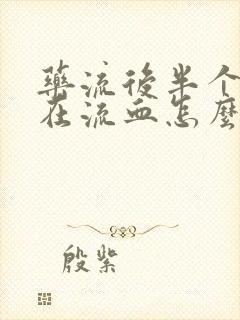 药流後半个
在流血怎麼
殷紫